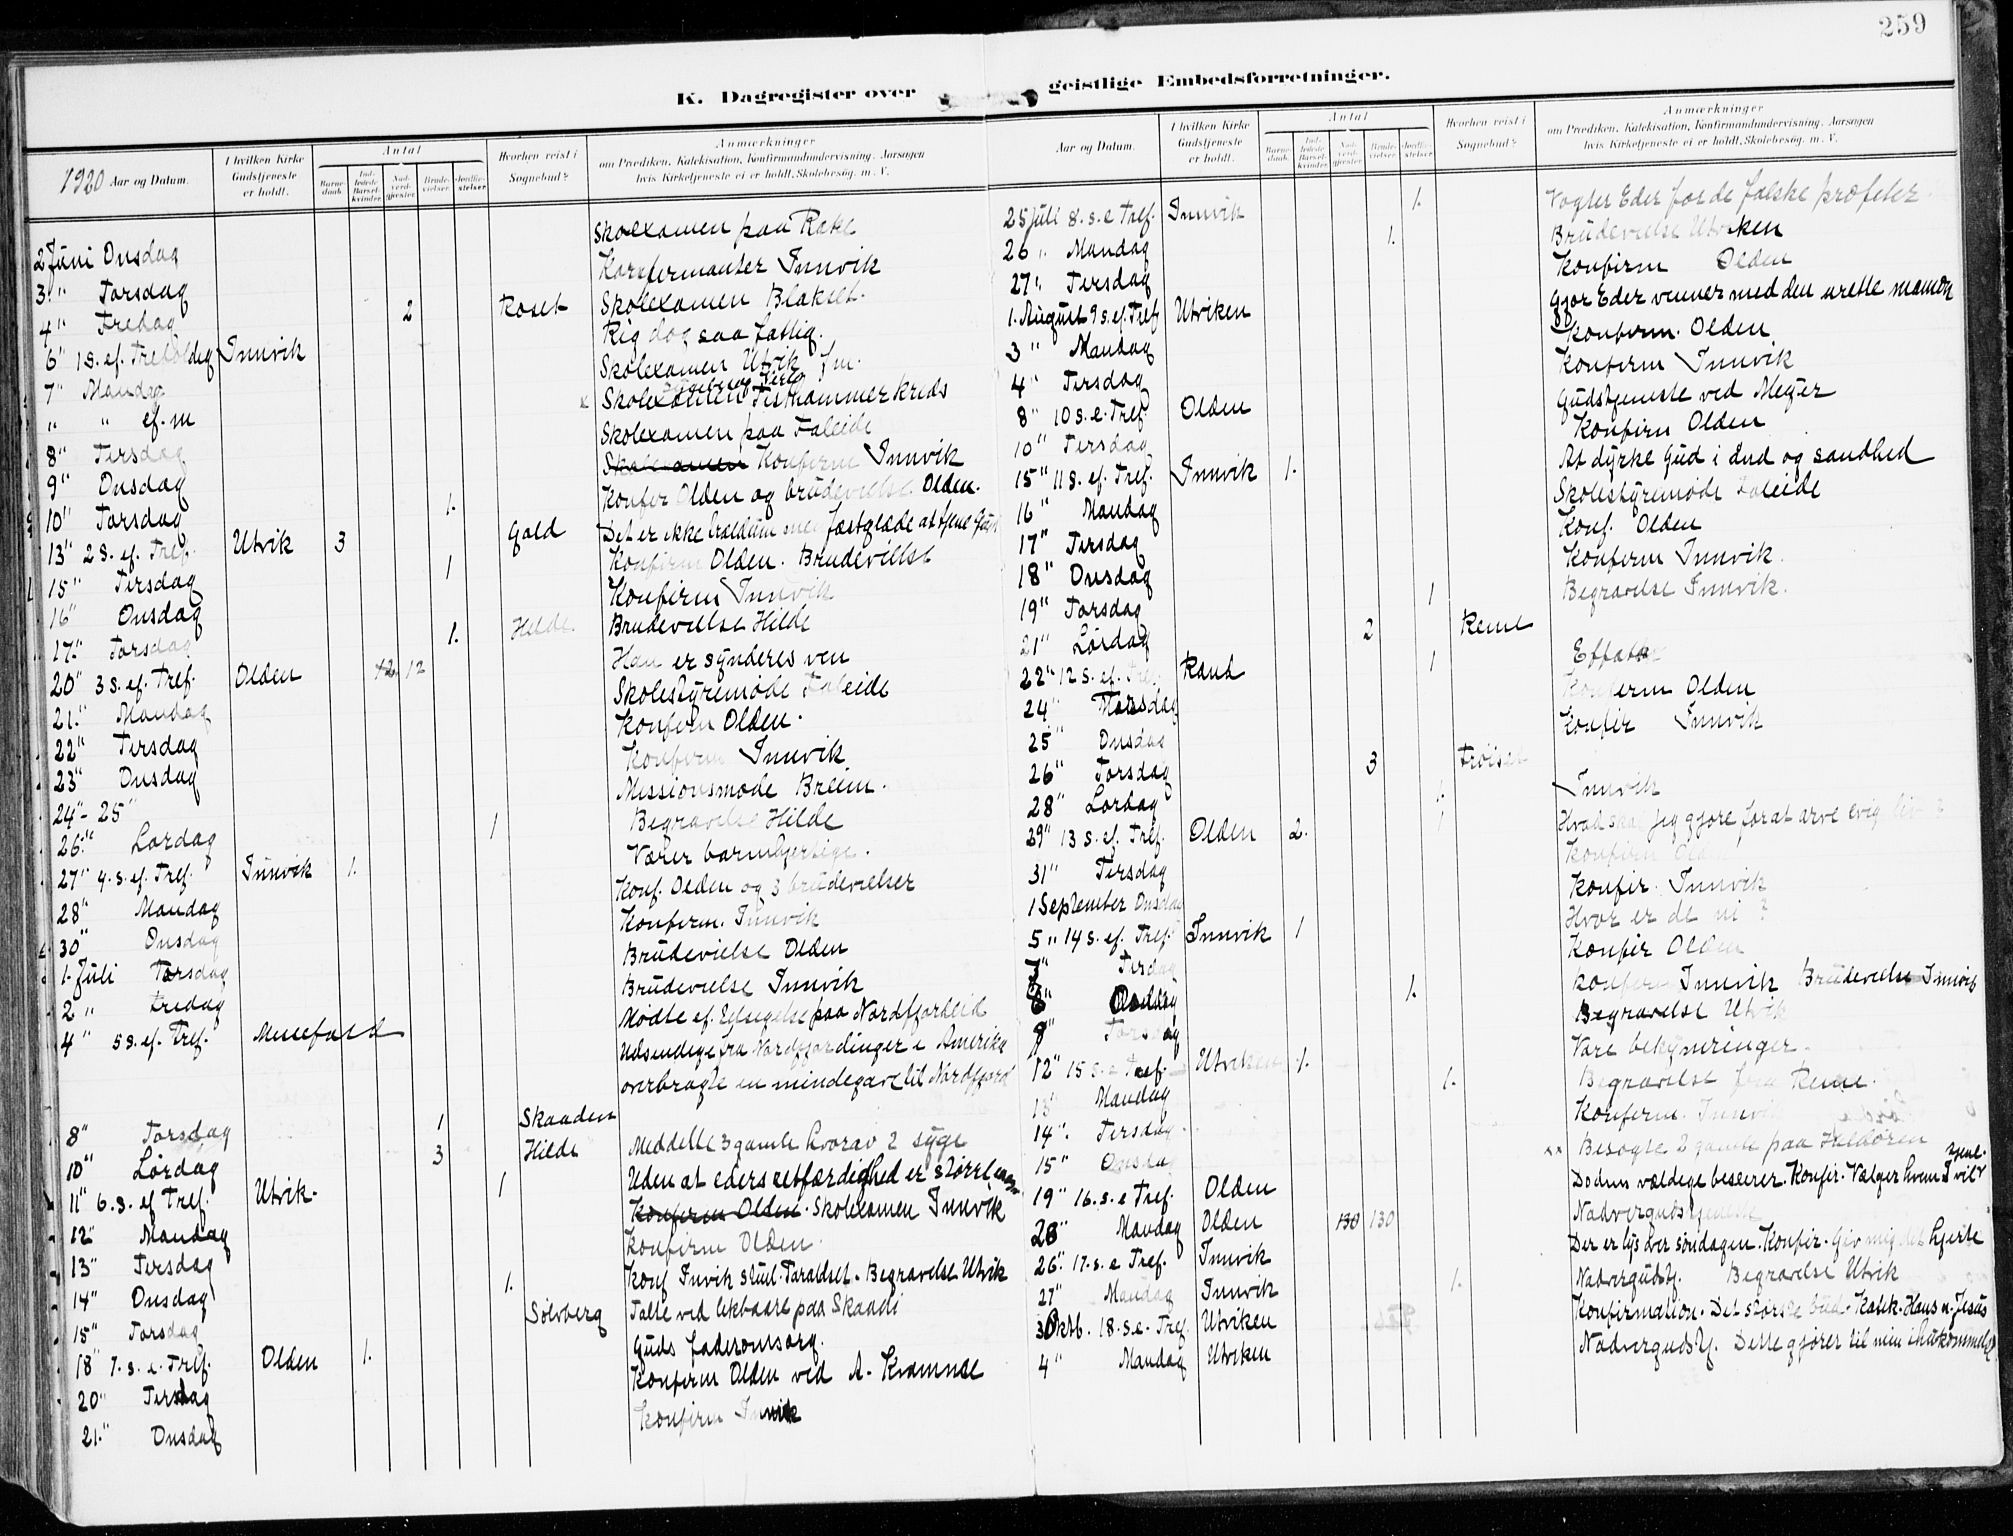 259
K. Dagregister over geistlige Embedsforretninger.
1920 Aar og Datum.
I hvilken Kirke Gudstjeneste er holdt.
Antal
Barnedaab.
Indledede Barselkvinder.
Nadverdgjester
Brudevielser
Jordfæstelser
Hvorhen reist i Sognebud?
Anmærkninger
om Prædiken, Katekisation, Konfirmandundervisning, Aarsagen
hvis Kirketjeneste ei er holdt, Skolebesøg, m. V.
Skolexamen paa Rake
2 Juni Onsdag Konfermanter Innvik
3 " Torsdag 2 Roset Skolexamen Blakset.
4 " Fredag Rig dog saa fattig.
6 " 1 s. ef. Trefoldig Innvik Skolexamen Utvik fm.
7 " Mandag x Skolexamen Tisthammer kreds
" " ef. m Skolexamen paa Faleide
8 " Tirsdag Skolexamen Konferm Innvik
9 " Onsdag 1. Konfer Olden og brudevielse Olden.
10 " Torsdag Gald Det er ikke
13 " 2 s. ef. Tref. Utvik 3 Konfirm Olden. Brudevielse
15 " Tirsdag 1 Konfirm Innvik
16 " Onsdag Hilde. Brudevielse Hilde
17 " Torsdag 1. Han er synderes ven
20 " 3 s. ef. Tref. Olden 12 12 Skolestyremøde Faleide
21. " Mandag Konfirm Olden.
22 " Tirsdag Konferm Innvik
23 " Onsdag Missionsmøde Breim.
24 - 25 " 1 Begravelse Hilde
26 " Lørdag Værer barmhjertige.
27 " 4. s. ef. Tref. Innvik 1. Konf. Olden og 3 brudevielser
28 " Mandag Konferm. Innvik
30 " Onsdag Brudevielse Olden
1. Juli Torsdag Brudevielse Innvik
2 " Fredag Mødte ef. paa Nordfjordeid
4 " 5 s. ef. Tref. Messefald Udsendige fra Nordfjordinger i Amerika
overbragte en mindegave til Nordfjord
8 " Torsdag 1 Skaaden
10 " Lørdag 3 Hilde Meddelte 3 gamle hvorav 2 syge
11 " 6. s. ef Tref. Utvik. 1 Uden at eders retfærdighed er større
12 " Mandag Konferm Olden. Skolexamen Innvik
13 " Tirsdag Konfirm Olden.
14 " Onsdag 1. Konf Invik Begravelse Utvik
15 " Torsdag Sölvberg Talte ved likbaare paa Skaadi
18 " 7. s. e. Tref. Olden 1. Guds faderomsorg.
20 " Tirsdag Konfirm Olden ved A. Kramnæ
21. " Onsdag Konfirm Innvik
Aar og Datum.
I hvilken Kirke Gudstjeneste er holdt.
Antal
Barnedaab.
Indledede Barselkvinder.
Nadverdgjester
Brudevielser
Jordfæstelser
Hvorhen reist i Sognebud?
Anmærkninger
om Prædiken, Katekisation, Konfirmandundervisning, Aarsagen
hvis Kirketjeneste ei er holdt, Skolebesøg, m. V.
25 juli 8. s. e Tref. Innvik 1. Vogter Eder for de falske profeter
26 " Mandag 1. Brudevielse Utviken
27 " Tirsdag Konfirm Olden
1. August 9 s. ef. Tref Utviken Gjør Eder venner med den urette mamon
3 " Mandag Konferm. Olden
4 " Tirsdag Konferm Innvik
8 " 10 s. e. Tref Olden Gudstjeneste ved Meyer
10 " Tirsdag Konfirm Olden
15 " 11 s. ef. Tref. Innvik 1. At dyrke Gud i Aand og sandhed
16 " Mandag Skolestyremøde Faleide
17 " Tirsdag Konf. Olden
18 " Onsdag Konferm Innvik.
19 " Torsdag 1 Begravelse Innvik.
21 " Lørdag 2 Reme
22 " 12 s. ef. Tref. Rand 1 Effata
24 " Tirsdag Konferm Olden
25 " Onsdag Konfir Innvik
26 " Torsdag 3 Frøiset
28 " Lørdag 1. Innvik
29 " 13 s. ef. Tref. Olden 2. Hvad skal jeg gjøre for at arve evig liv?
31 " Tirsdag Konfirm Olden
1 September Onsdag Konfir. Innvik
5 " 14 s. ef. Tref. Innvik 1 Hvor er de ni?
7 " Tirsdag Konfir Olden
8 " Onsdag 1. Konferm Innvik Brudevielse Innvik
9 " Torsdag Begravelse Utvik
12 " 15 s. e Tref. Utviken 1. Vare bekymringer.
13 " Mandag 1. Begravelse fra Reme.
14 " Tirsdag Konferm. Innvik
15 " Onsdag xx Besøgte 2 gamle paa
19 " 16. s. e Tref. Olden Dødens vældige beseirer. Konfir. Vælger hvem I vil tjene.
20 " Mandag Olden 130 130 Nadvergudstjeneste
26 " 17. s. e Tref. Innvik Der er lys over søndagen. Konfir. Giv mig dit hjerte
27 " Mandag Innvik 1. Nadvergudstj. Begravelse Utvik
3 Oktb. 18. s. e. Tref. Utviken Konfirmation. Det største bud. Katek.
4 " Mandag Utviken Nadvergudstj. Dette gjører til min ihukommelse